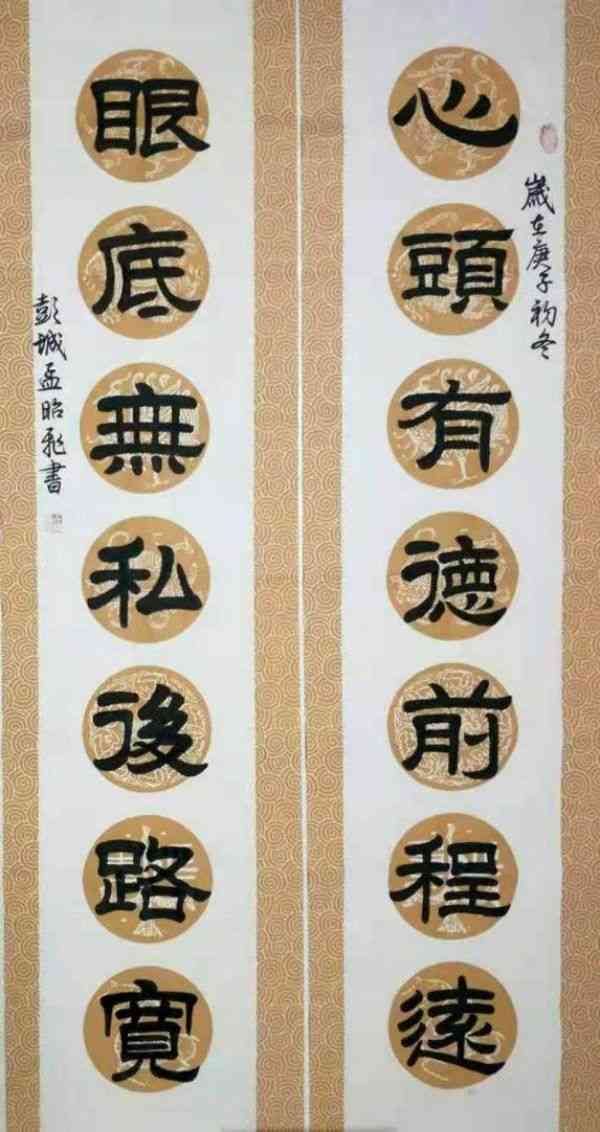 歲在庚子初冬
心頭有德前程遠
眼底無私後路寬
彭城孟昭飛書